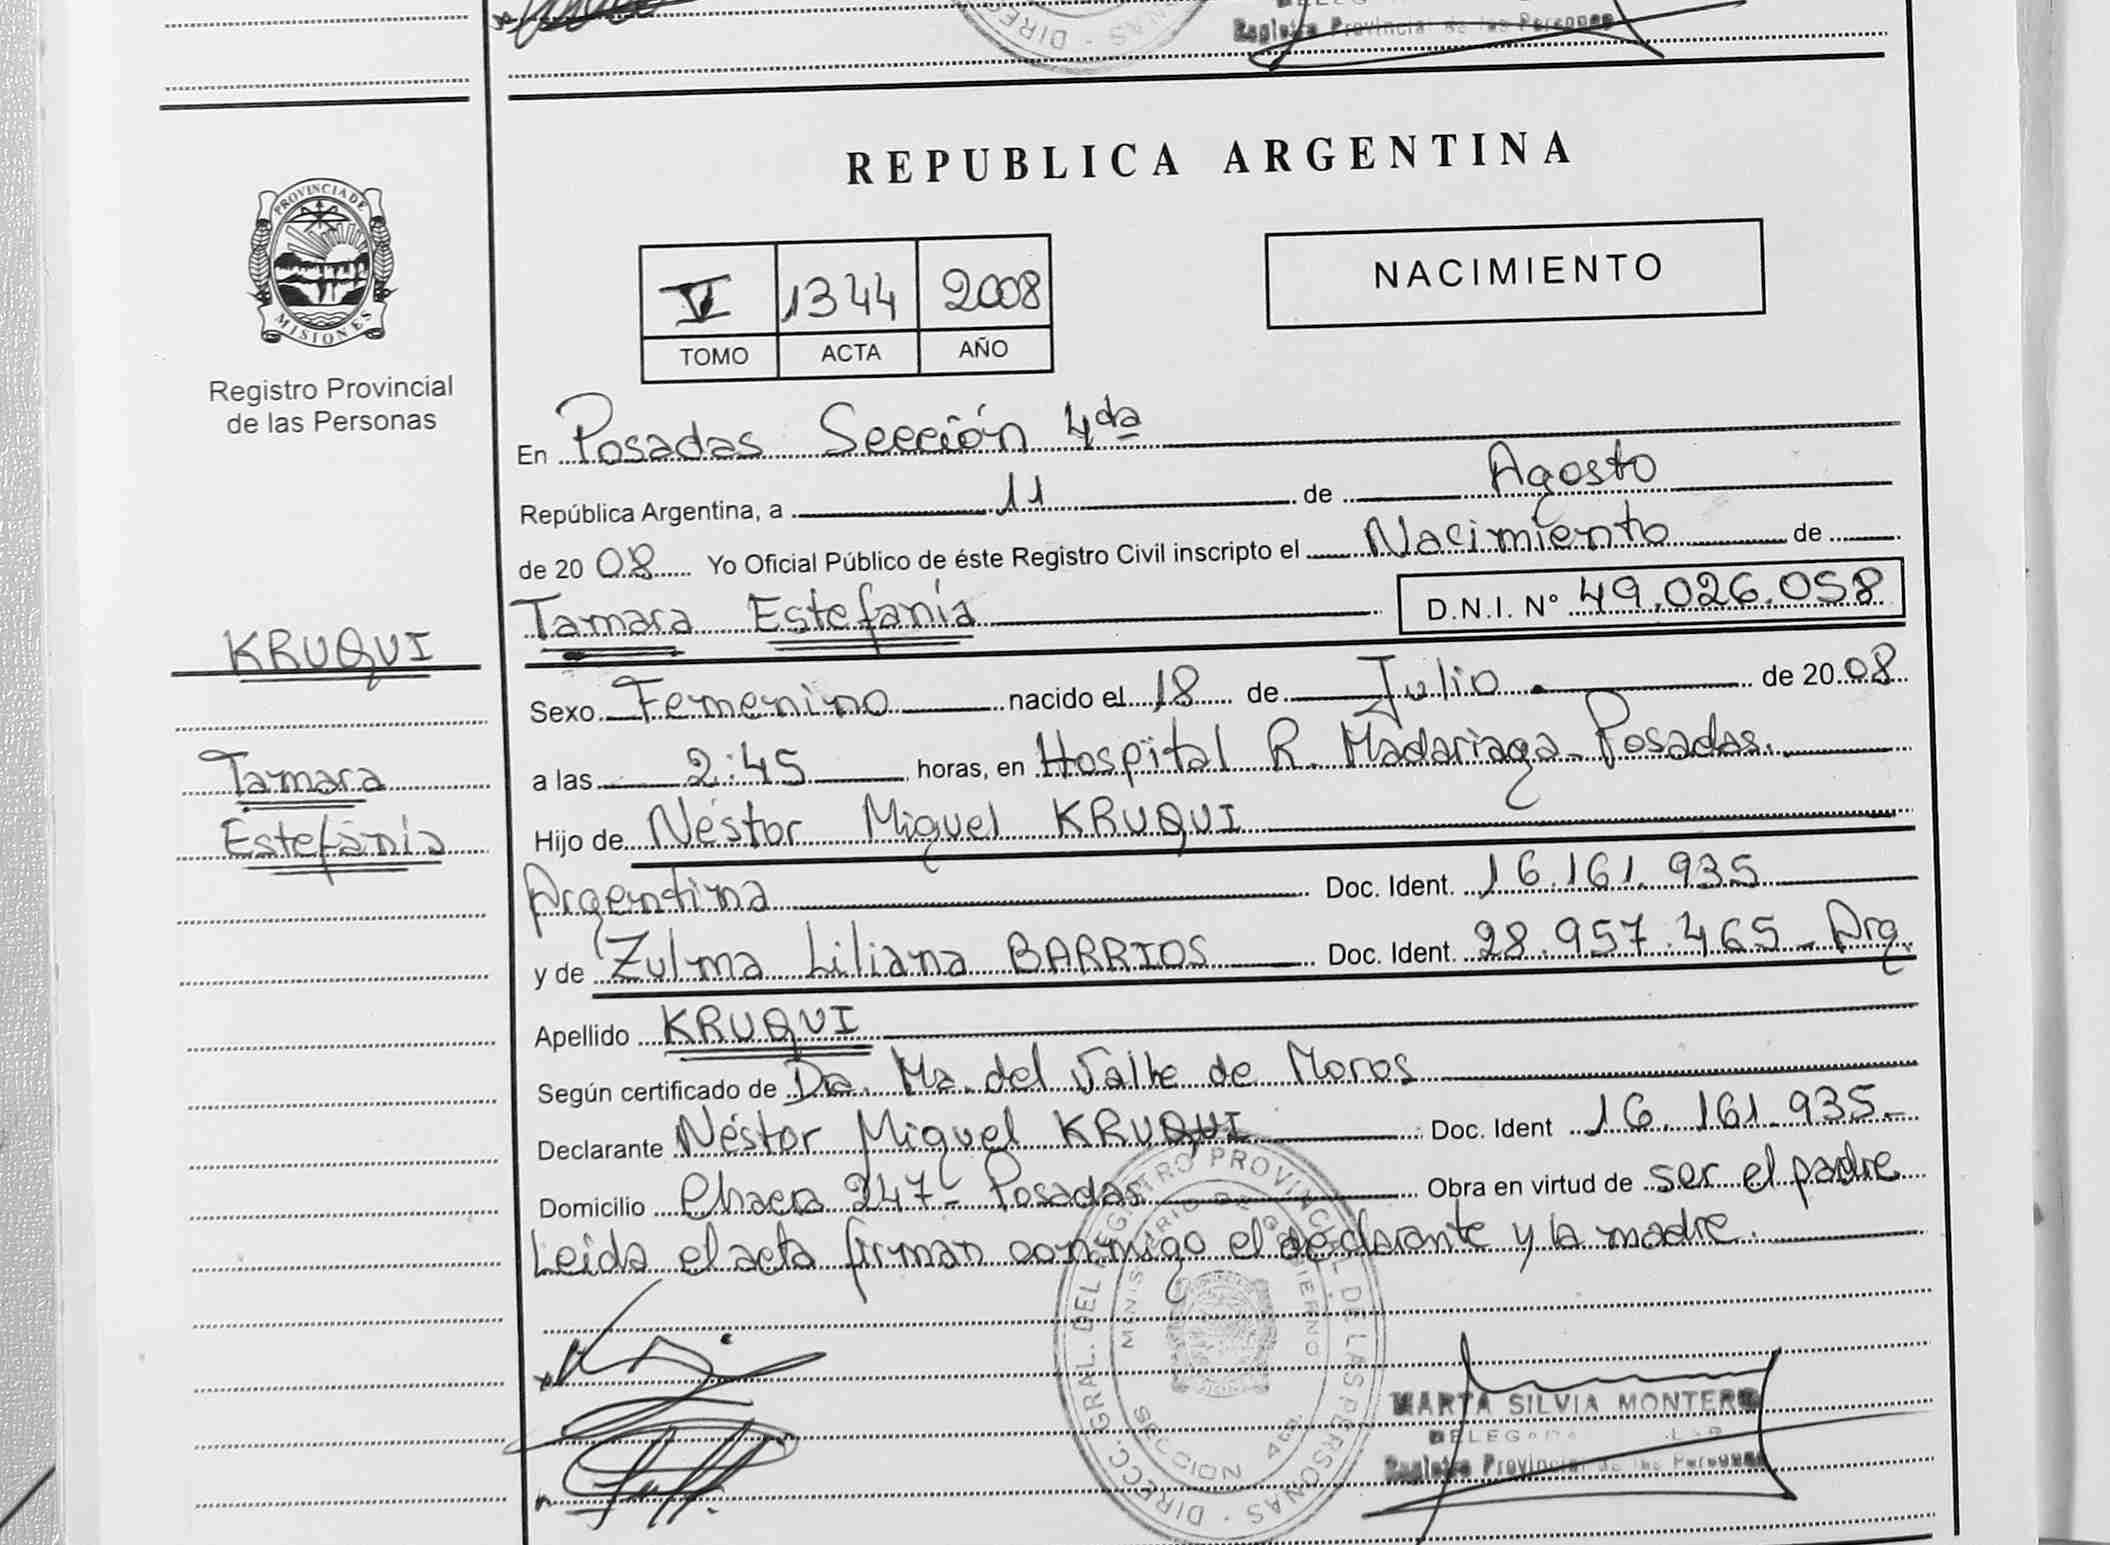 Registro Provincial de las Personas
DIREC
NAS
PROVINCIA DE
MISIONES
Registro Provincial
de las Personas
KRUQUI
Tamara
Estefanía
REPUBLICA ARGENTINA
V 1344 2008
TOMO ACTA AÑO
NACIMIENTO
En Posadas Sección 4da
República Argentina, a 11 de Agosto
de 2008 Yo Oficial Público de éste Registro Civil inscripto el Nacimiento de
Tamara Estefanía D.N.I. N° 49.026.058
Sexo Femenino nacido el 18 de Julio de 2008
a las 2:45 horas, en Hospital R. Madariaga - Posadas.
Hijo de Néstor Miguel KRUQUI
Argentina Doc. Ident. 16.161.935
y de Zulma Liliana BARRIOS Doc. Ident. 28.957.465 - Arg.
Apellido KRUQUI
Según certificado de Dra. Ma. del Valle de Moros
Declarante Néstor Miguel KRUQUI Doc. Ident 16.161.935-
Domicilio Chacra 247- Posadas Obra en virtud de ser el padre
Leida el acta firman conmigo el declarante y la madre.
DIRECC. GRAL. DEL REGISTRO PROVINCIAL DE LAS PERSONAS
MINISTERIO DE GOBIERNO
SECCION 4ta
MARTA SILVIA MONTERO
Registro Provincial de las Personas